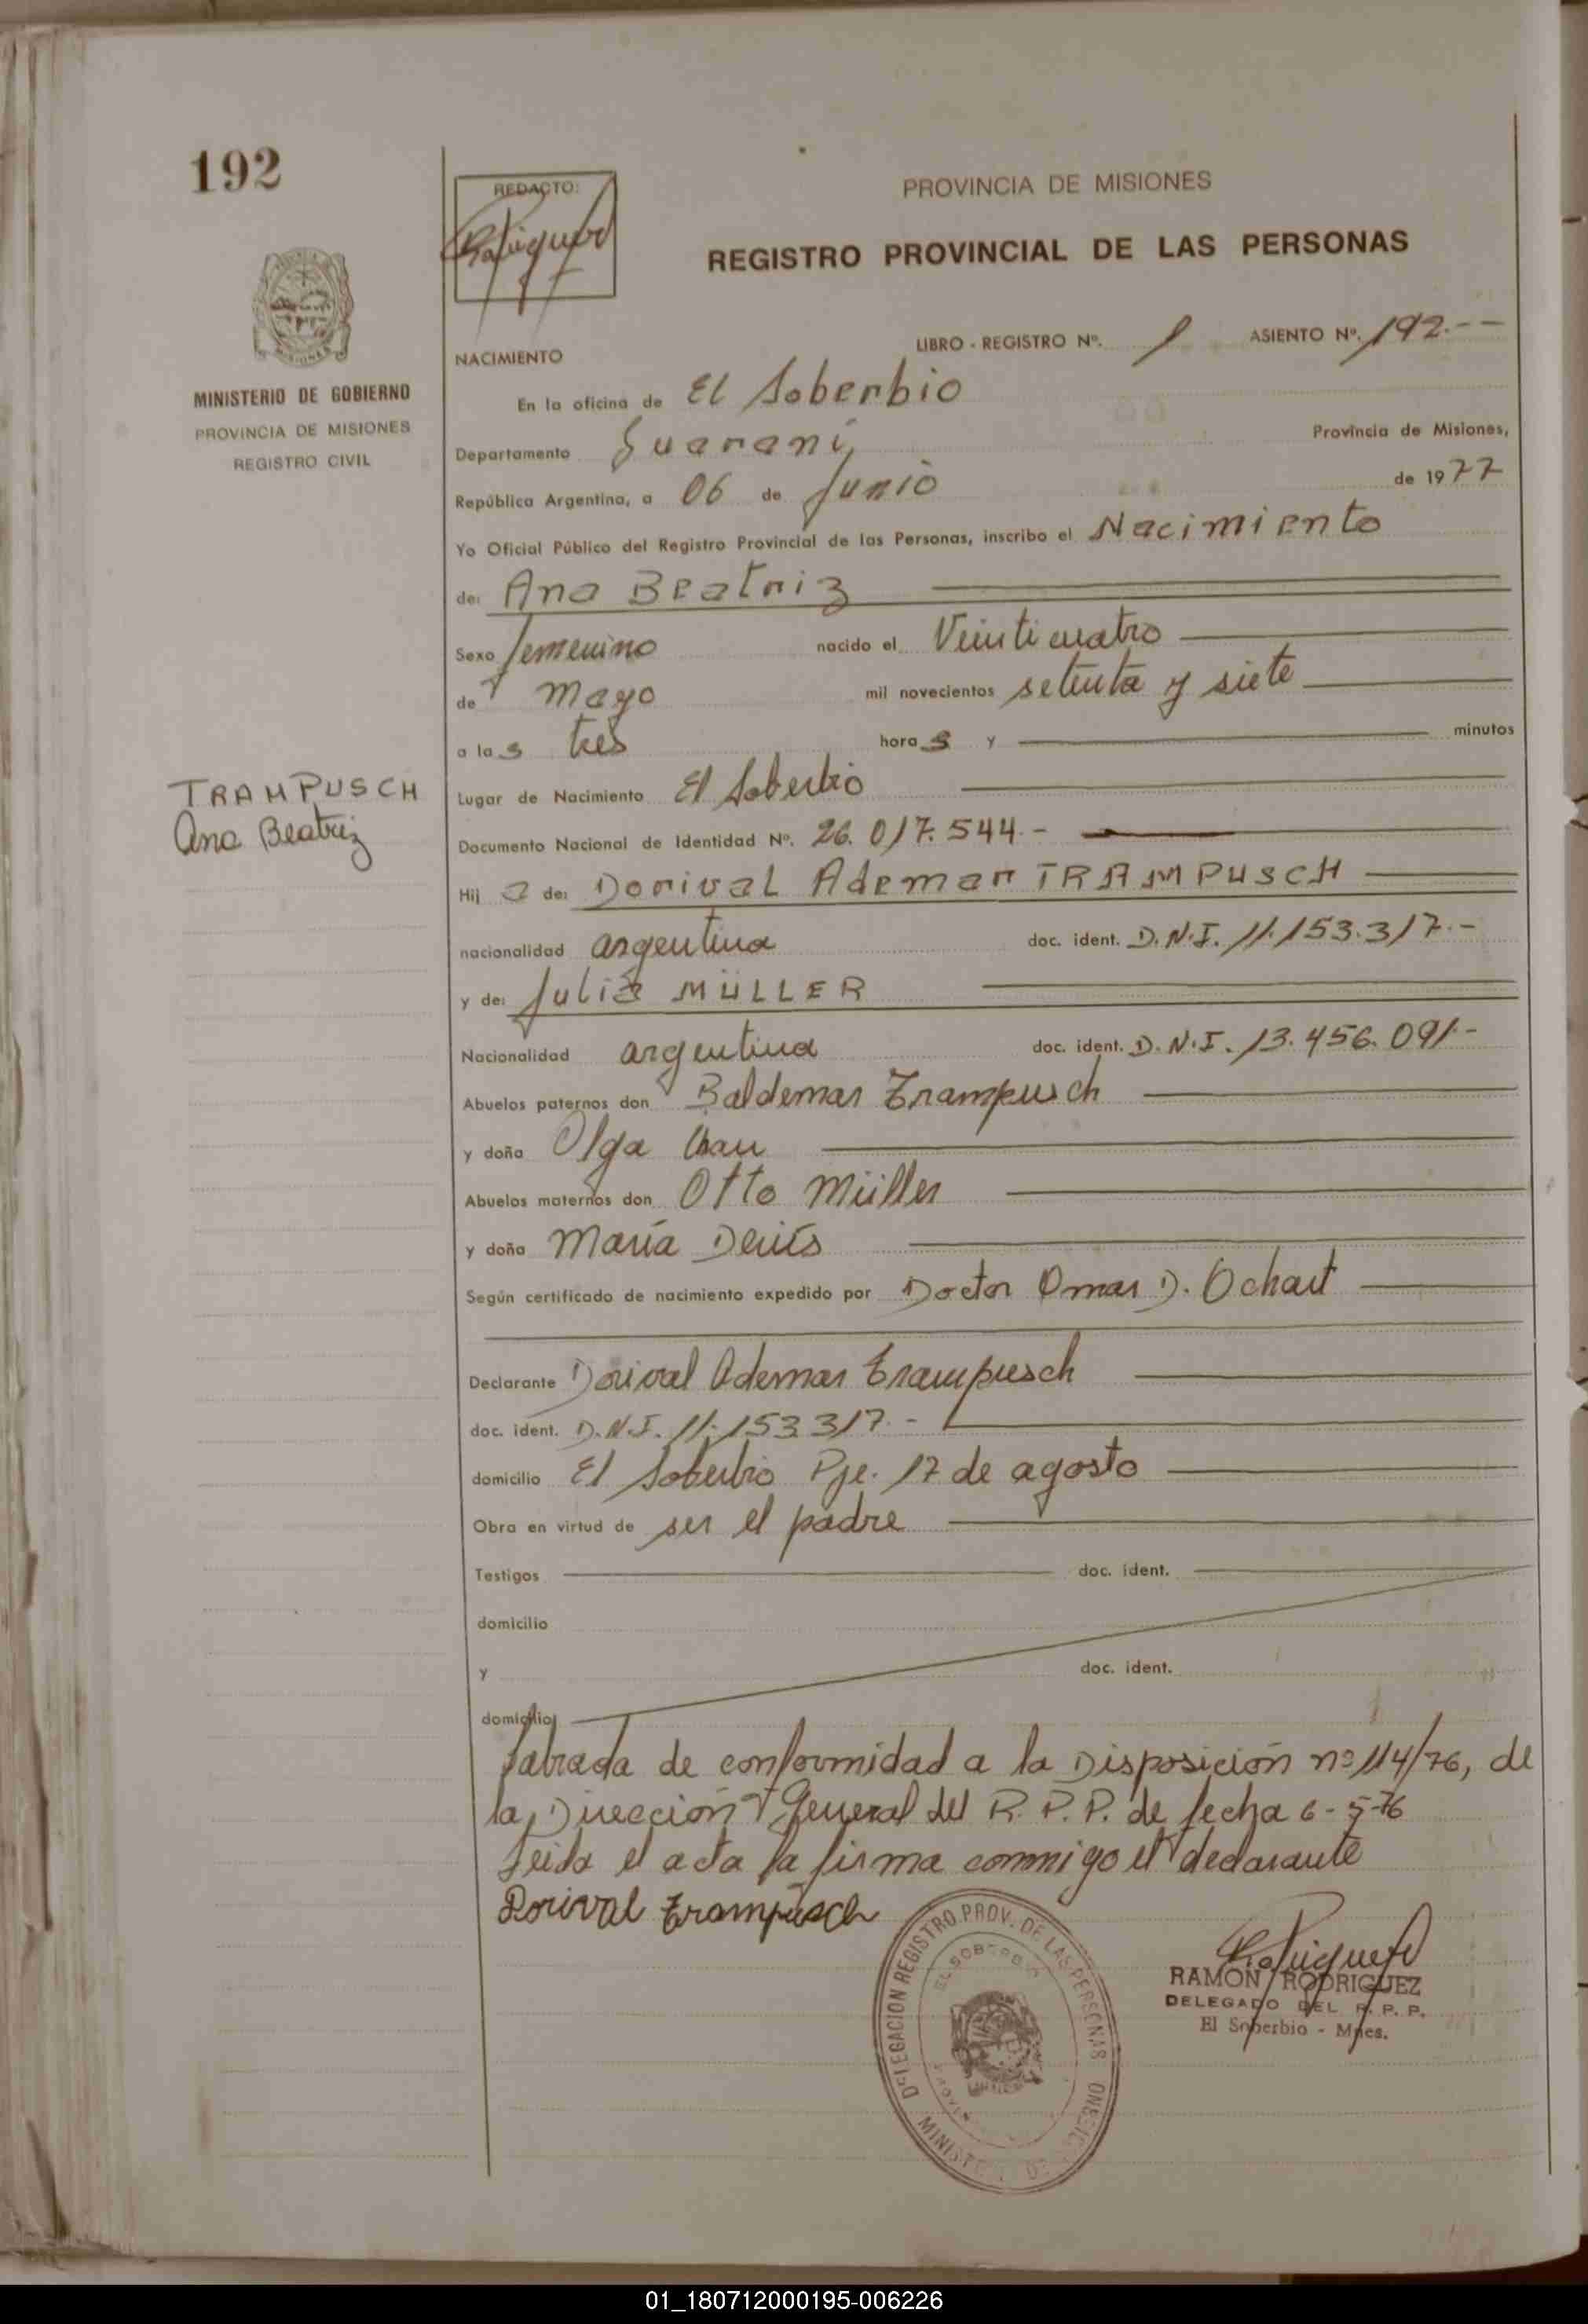 192
REDACTO:
PROVINCIA DE MISIONES
REGISTRO PROVINCIAL DE LAS PERSONAS
MINISTERIO DE GOBIERNO
PROVINCIA DE MISIONES
REGISTRO CIVIL
NACIMIENTO
LIBRO - REGISTRO Nº. 1 ASIENTO Nº. 192.--
En la oficina de El Soberbio
Departamento Guaraní, Provincia de Misiones,
República Argentina, a 06 de Junio de 1977
Yo Oficial Público del Registro Provincial de las Personas, inscribo el Nacimiento
de: Ana Beatriz
Sexo femenino nacido el Veinticuatro
de mayo mil novecientos setenta y siete
a las tres horas y minutos
TRAMPUSCH
Ana Beatriz
Lugar de Nacimiento El Soberbio
Documento Nacional de Identidad Nº. 26.017.544.-
Hij a de: Dorival Ademar TRAMPUSCH
nacionalidad argentina doc. ident. D.N.I. 11.153.317.-
y de: Julia MÜLLER
Nacionalidad argentina doc. ident. D.N.I. 13.456.091.-
Abuelos paternos don Baldemar Trampusch
y doña Olga
Abuelos maternos don Otto Müller
y doña María
Según certificado de nacimiento expedido por Doctor Omar D. Ochart
Declarante Dorival Ademar Trampusch
doc. ident. D.N.I. 11.153.317.-
domicilio El Soberbio Pje. 17 de agosto
Obra en virtud de ser el padre
Testigos doc. ident.
domicilio
y doc. ident.
domicilio
labrada de conformidad a la Disposición nº 114/76, de
la Dirección General del R.P.P. de fecha 6-5-76
Leida el acta la firma conmigo el declarante
Dorival Trampusch
DELEGACION REGISTRO PROV. DE LAS PERSONAS
EL SOBERBIO
RAMON RODRIGUEZ
DELEGADO DEL R. P. P.
El Soberbio - Mnes.
01_180712000195-006226